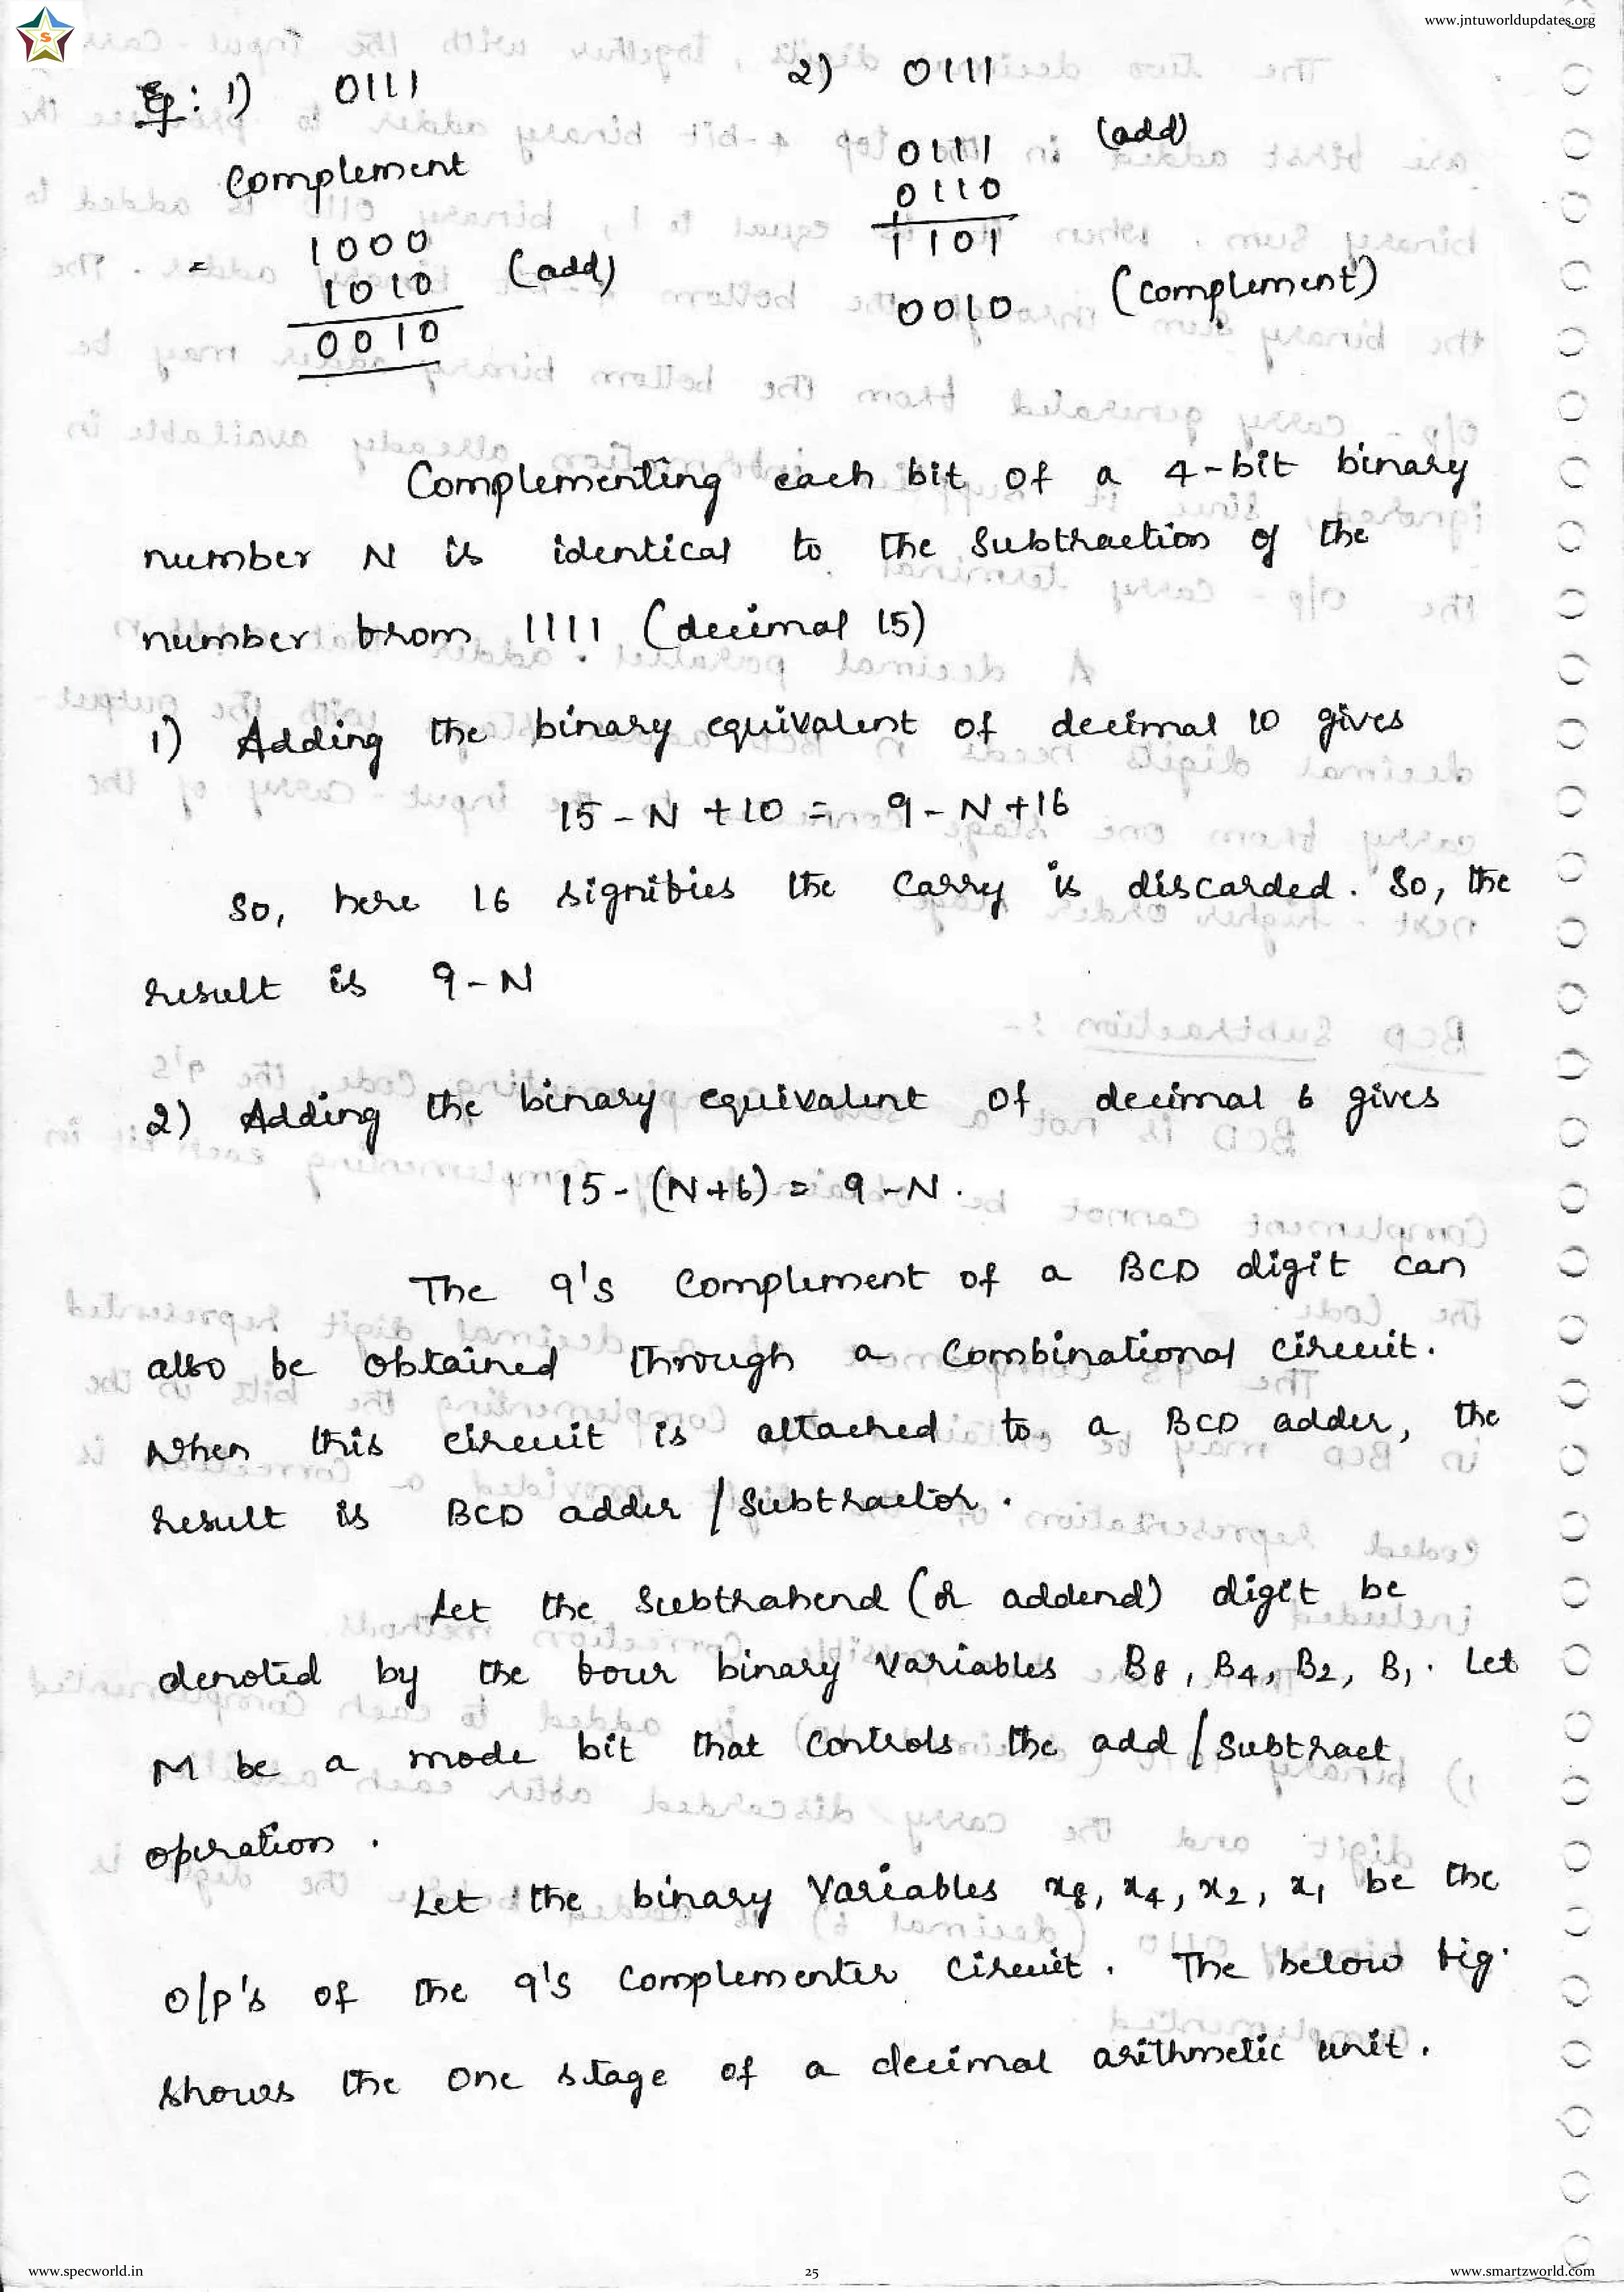 www.jntuworldupdates.org
S
Eg : 1) 0111
Complement
= 1000
1010 (add)
0010
2) 0111
0111 (add)
0110
1101
0010 (complement)
Complementing each bit of a 4-bit binary
number N is identical to the Subtraction of the
number from 1111 (decimal 15)
1) Adding the binary equivalent of decimal 10 gives
15 - N + 10 = 9 - N + 16
So, here 16 signifies the carry is discarded. So, the
result is 9 - N
2) Adding the binary equivalent of decimal 6 gives
15 - (N+6) = 9 - N .
The 9's Complement of a BCD digit can
also be obtained through a Combinational circuit.
When this circuit is attached to a BCD adder, the
result is BCD adder / Subtractor .
Let the Subtrahend (or addend) digit be
denoted by the four binary Variables B8, B4, B2, B1. Let
M be a mode bit that Controls the add / Subtract
operation .
Let the binary Variables x8, x4, x2, x1 be the
O/P's of the 9's Complementer Circuit . The below fig.
shows the One stage of a decimal arithmetic unit .
www.specworld.in
25
www.smartzworld.com